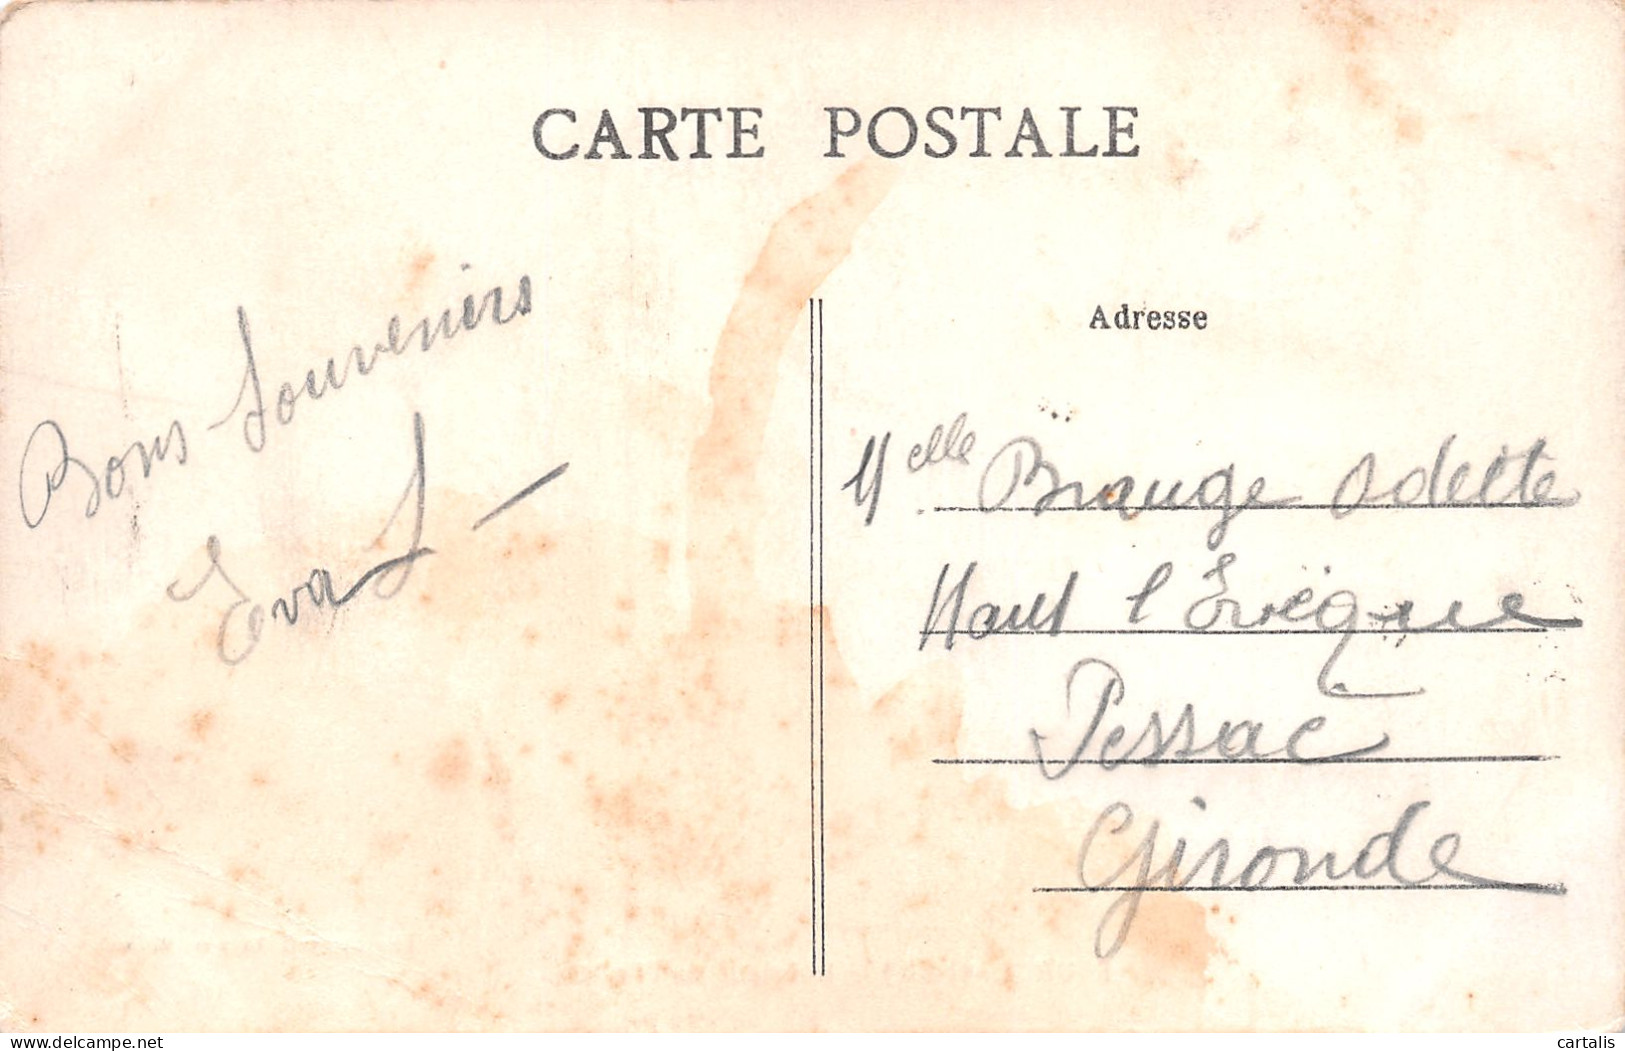 CARTE POSTALE
Bons Souvenirs
Eva L
Adresse
Melle Brauge Odette
Haut l'Evèque
Pessac
Gironde
www.delcampe.net
cartalis